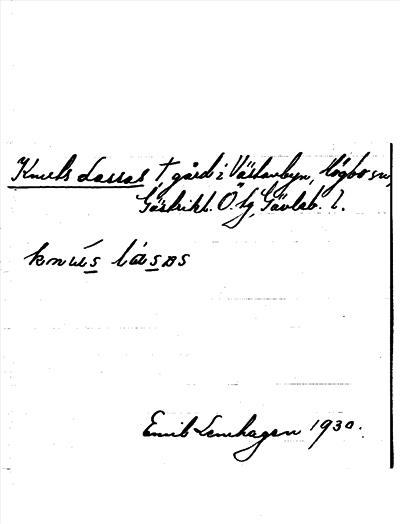 Knuts Lassas † gård i Västanbyn, Högbo sn,
Gästrikl. Ö. tg, Gävleb. l.
knùs lásas
Emil Lenhagen 1930.